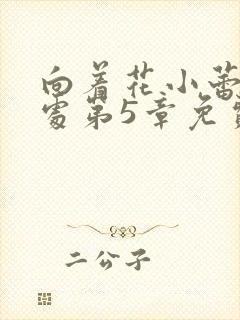 向着花小蕾
处第5章免费
二公子